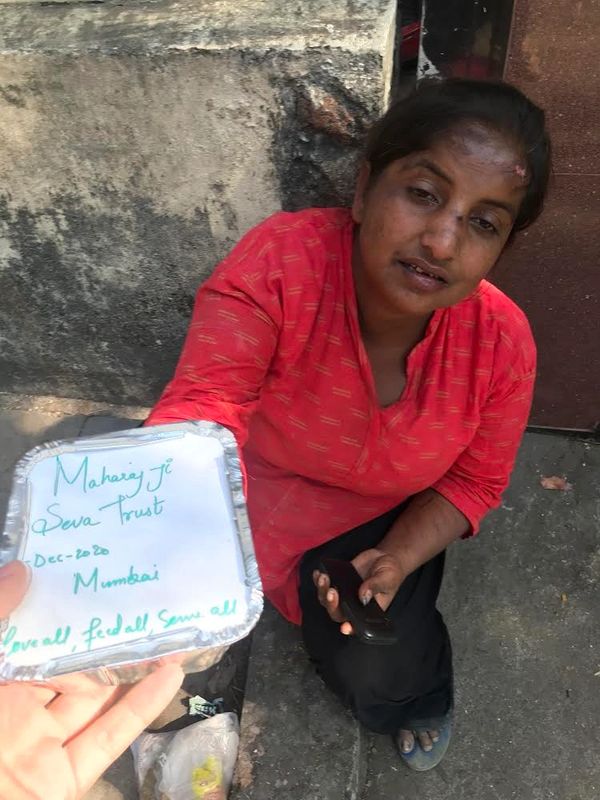 Maharaj ji
Seva Trust
-Dec-2020
Mumbai
Love all, feed all, Serve all